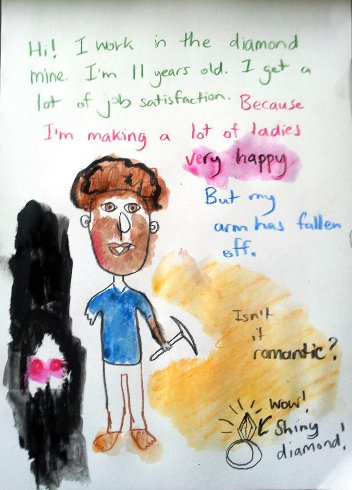 Hi! I work in the diamond
mine. I'm 11 years old. I get a
lot of job satisfaction. Because
I'm making a lot of ladies
very happy
But my
arm has fallen
off.
Isn't
it
romantic?
Wow!
Shiny
diamond!